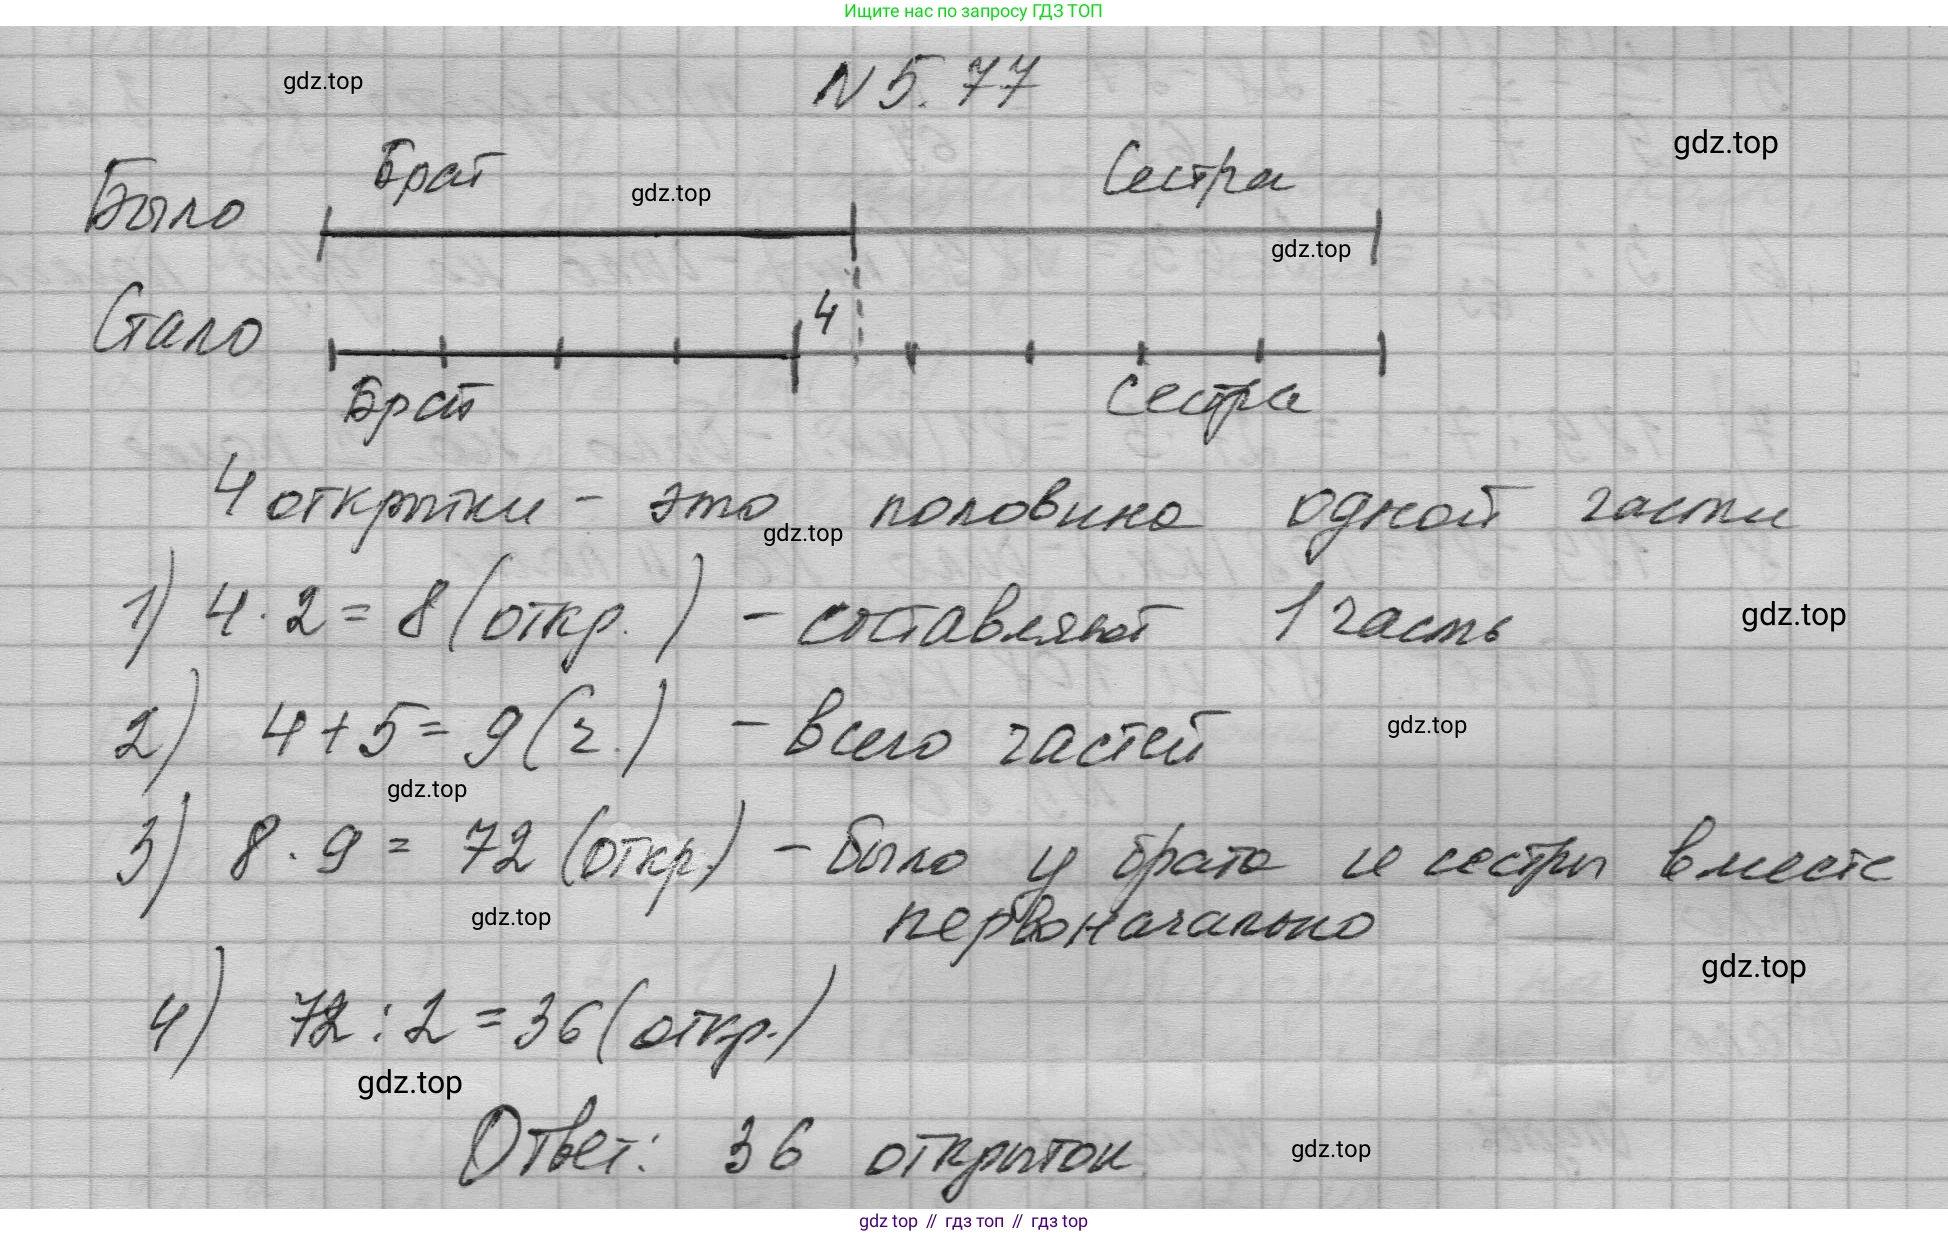 Ищите нас по запросу ГДЗ ТОП
N 5.77
gdz.top
gdz.top
Брат
Сестра
Было
gdz.top
gdz.top
Стало
4
Брат
Сестра
4 открытки - это половина одной части
gdz.top
1) 4 · 2 = 8 (откр.) - составляют 1 часть
gdz.top
2) 4 + 5 = 9 (ч.) - всего частей
gdz.top
gdz.top
3) 8 · 9 = 72 (откр.) - было у брата и сестры вместе
первоначально
gdz.top
gdz.top
4) 72 : 2 = 36 (откр.)
gdz.top
Ответ: 36 открыток
gdz.top
gdz top // гдз топ // гдз top